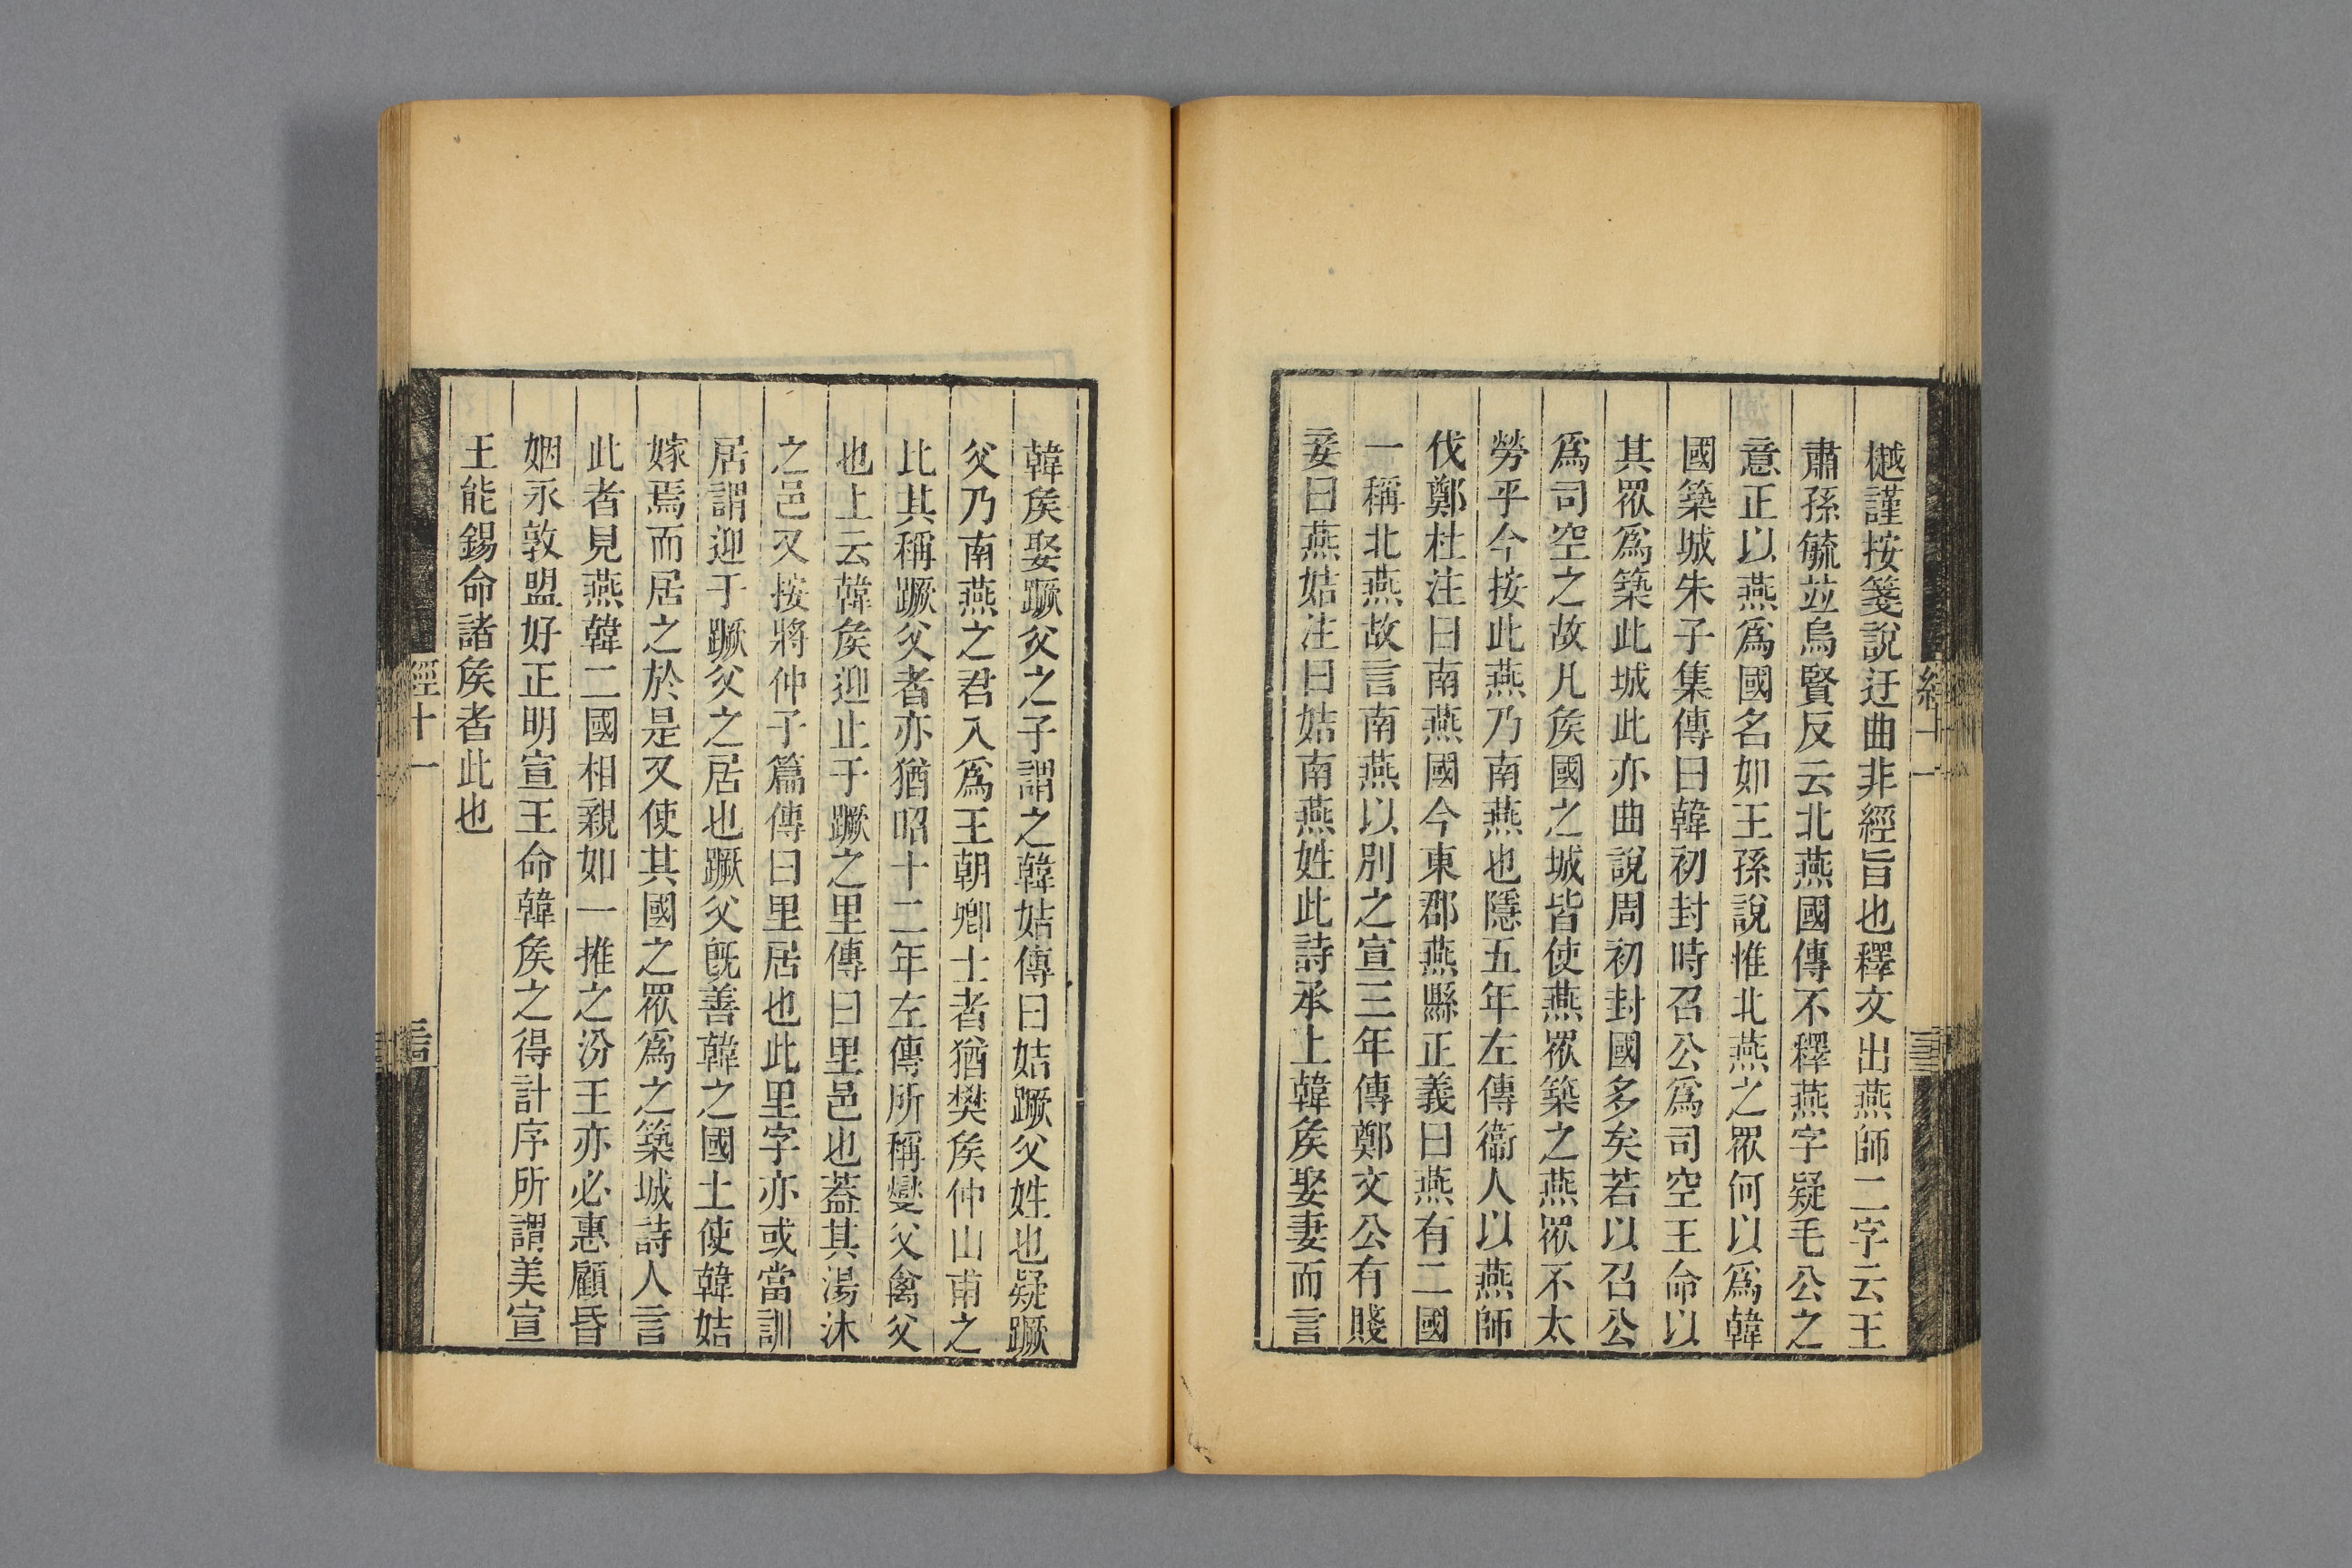 樾謹按箋說迂曲非經旨也釋文出燕師二字云王
肅孫毓竝烏賢反云北燕國傳不釋燕字疑毛公之
意正以燕爲國名如王孫說惟北燕之眾何以爲韓
國築城朱子集傳曰韓初封時召公爲司空王命以
其眾爲築此城此亦曲說周初封國多矣若以召公
爲司空之故凡矦國之城皆使燕眾築之燕眾不太
勞乎今按此燕乃南燕也隱五年左傳衞人以燕師
伐鄭杜注曰南燕國今東郡燕縣正義曰燕有二國
一稱北燕故言南燕以別之宣三年傳鄭文公有賤
妾曰燕姞注曰姞南燕姓此詩承上韓矦娶妻而言
經十一
韓矦娶蹶父之子謂之韓姞傳曰姞蹶父姓也疑蹶
父乃南燕之君入爲王朝卿士者猶樊矦仲山甫之
比其稱蹶父者亦猶昭十二年左傳所稱燮父禽父
也上云韓矦迎止于蹶之里傳曰里邑也蓋其湯沐
之邑又按將仲子篇傳曰里居也此里字亦或當訓
居謂迎于蹶父之居也蹶父旣善韓之國土使韓姞
嫁焉而居之於是又使其國之眾爲之築城詩人言
此者見燕韓二國相親如一推之汾王亦必惠顧昏
姻永敦盟好正明宣王命韓矦之得計序所謂美宣
王能錫命諸矦者此也
經十一